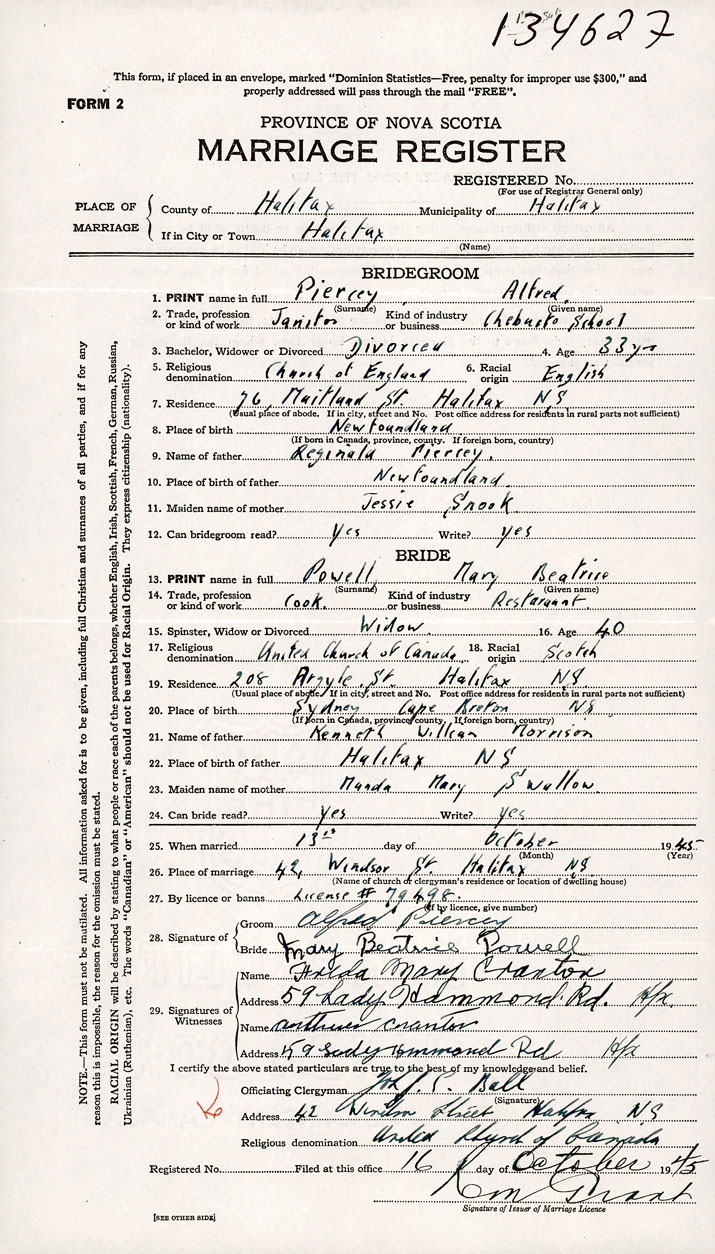 134627
This form, if placed in an envelope, marked "Dominion Statistics—Free, penalty for improper use $300," and
properly addressed will pass through the mail "FREE".
FORM 2
PROVINCE OF NOVA SCOTIA
MARRIAGE REGISTER
REGISTERED No.
(For use of Registrar General only)
PLACE OF MARRIAGE
County of Halifax Municipality of Halifax
If in City or Town Halifax
(Name)
BRIDEGROOM
1. PRINT name in full Piercey Alfred
(Surname) (Given name)
2. Trade, profession or kind of work Janitor Kind of industry or business Chebucto School
3. Bachelor, Widower or Divorced Divorced 4. Age 33 yrs
5. Religious denomination Church of England 6. Racial origin English
7. Residence 76, Maitland St. Halifax NS
(Usual place of abode. If in city, street and No. Post office address for residents in rural parts not sufficient)
8. Place of birth Newfoundland
(If born in Canada, province, county. If foreign born, country)
9. Name of father Reginald Piercey.
10. Place of birth of father Newfoundland.
11. Maiden name of mother Jessie Snook
12. Can bridegroom read? Yes Write? yes
BRIDE
13. PRINT name in full Powell, Mary Beatrice
(Surname) (Given name)
14. Trade, profession or kind of work Cook. Kind of industry or business Restaraunt.
15. Spinster, Widow or Divorced Widow. 16. Age 40
17. Religious denomination United Church of Canada. 18. Racial origin Scotch
19. Residence 208 Argyle St Halifax NS
(Usual place of abode. If in city, street and No. Post office address for residents in rural parts not sufficient)
20. Place of birth Sydney Cape Breton NS
(If born in Canada, province, county. If foreign born, country)
21. Name of father Kenneth William Morrison
22. Place of birth of father Halifax NS
23. Maiden name of mother Mary Swallow.
24. Can bride read? Yes Write? yes
25. When married 13th day of October 1945
(Month) (Year)
26. Place of marriage 42, Windsor St. Halifax NS
(Name of church or clergyman's residence or location of dwelling house)
27. By licence or banns License # 79498.
(If by licence, give number)
28. Signature of
Groom Alfred Piercey
Bride Mary Beatrice Powell
29. Signatures of Witnesses
Name Freda Mary Cranton
Address 59 Lady Hammond Rd. Hfx.
Name Arthur Cranton
Address 59 Lady Hammond Rd Hfx
I certify the above stated particulars are true to the best of my knowledge and belief.
Officiating Clergyman Ball
(Signature)
Address 42 Windsor Street Halifax NS
Religious denomination United Church of Canada
Registered No. Filed at this office 16 day of October 1945
Grant
Signature of Issuer of Marriage Licence
[SEE OTHER SIDE]
NOTE.—This form must not be mutilated. All information asked for is to be given, including full Christian and surnames of all parties, and if for any
reason this is impossible, the reason for the omission must be stated.
RACIAL ORIGIN will be described by stating to what people or race each of the parents belongs, whether English, Irish, Scottish, French, German, Russian,
Ukrainian (Ruthenian), etc. The words "Canadian" or "American" should not be used for Racial Origin. They express citizenship (nationality).